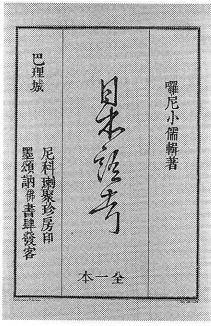 囉尼小儒輯著
日本語考
全一本
巴理城
尼科瑚聚珍房印
墨頌訥佛書肆發客